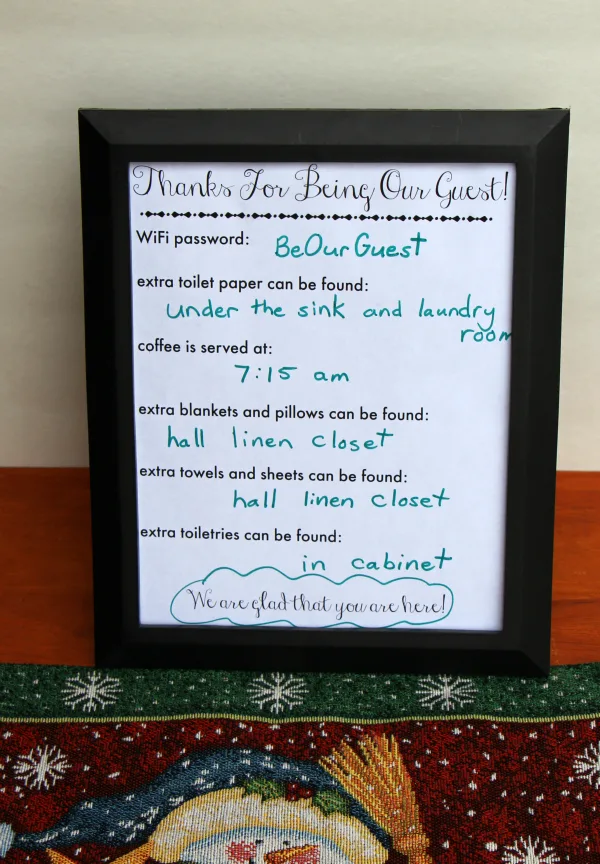 Thanks For Being Our Guest!
WiFi password: BeOurGuest
extra toilet paper can be found:
under the sink and laundry
room
coffee is served at:
7:15 am
extra blankets and pillows can be found:
hall linen closet
extra towels and sheets can be found:
hall linen closet
extra toiletries can be found:
in cabinet
We are glad that you are here!